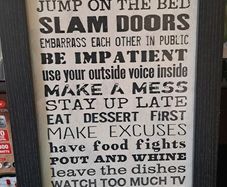 JUMP ON THE BED
SLAM DOORS
EMBARRASS EACH OTHER IN PUBLIC
BE IMPATIENT
use your outside voice inside
MAKE A MESS
STAY UP LATE
EAT DESSERT FIRST
MAKE EXCUSES
have food fights
POUT AND WHINE
leave the dishes
WATCH TOO MUCH TV